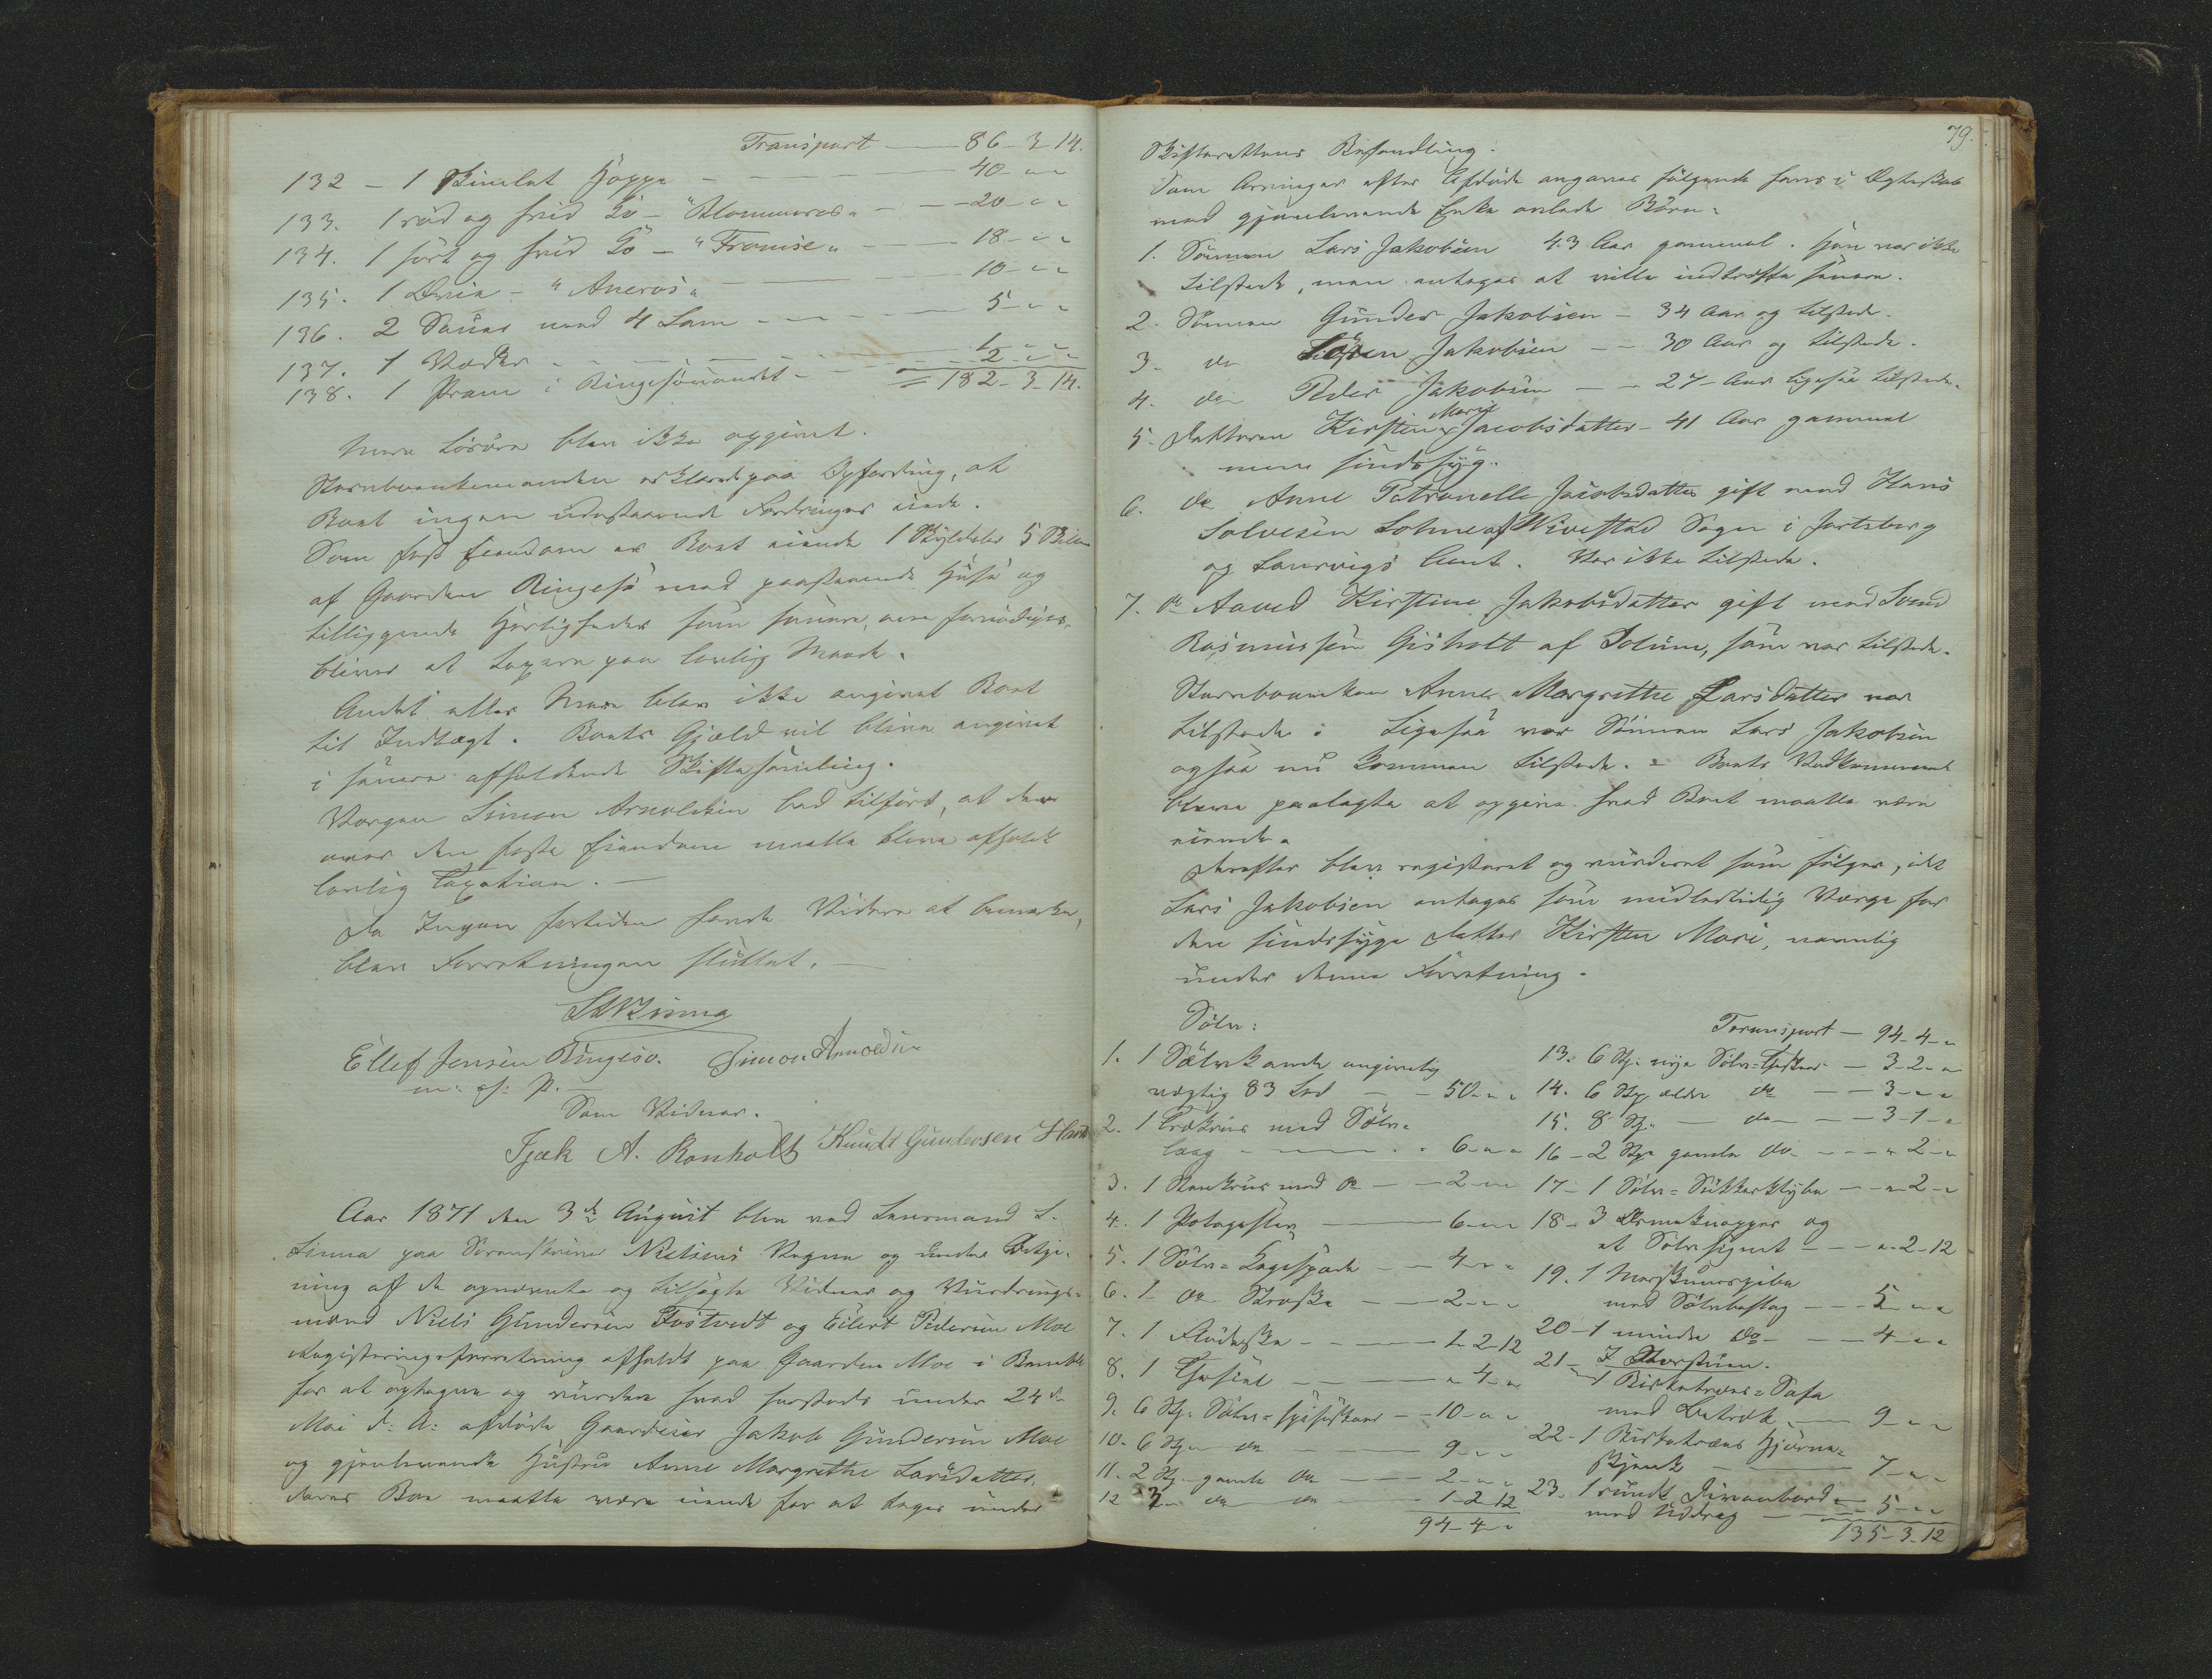 Transport — 86-3-14.
132 - 1 Skimlet Hoppe — 40-"-"
133. 1 röd og hvid Ko - "Blommeros" — 20-"-"
134. 1 sort og hvid Ko - "Fromise" — 18-"-"
135. 1 Qvie - "Aneros" — 10-"-"
136. 2 Sauer med 4 Lam — 5-"-"
137. 1 Væder — 1-"-"
138. 1 Pram i Ringesövandet — 2-"-"
= 182-3-14.
Mere Lösöre blev ikke opgivet.
Stervboenkemanden erklærede paa Opfordring, at
Boet ingen udestaaende Fordringer eiede.
Som fast Eiendom er Boet eiende 1 Skyldaler 5 Skilling
af Gaarden Ringesö med paastaaende Huse og
tilliggende Herligheder som senere, om fornödiges,
bliver at taxere paa lovlig Maade.
Andet eller Mere blev ikke angivet Boet
til Indtægt. Boets Gjæld vil blive angivet
i senere afholdende Skiftesamling.
Værgen Simon Arnoldsen bad tilfört, at der
over den faste Eiendom maatte blive afholdt
lovlig Taxation. —
Da Ingen fortiden havde Videre at bemærke,
blev Forretningen sluttet. —
Ellef Jensen Ringesö. Simon Arnoldsen
m. f. P.
Som Vidner.
Isak A. Ronholt Knudt Gundersen
Aar 1871 den 3die August blev ved Lensmand L.
Linna paa Sorenskriver Nielsens Vegne og under Betje-
ning af de opnævnte og tilsagte Vidner og Vurderings-
mænd Niels Gundersen Tostvedt og Eilert Pedersen Moe
Registreringsforretning afholdt paa Gaarden Moe i Bamble
for at optegne og vurdere hvad herstedets under 24de
Mai d. A. afdöde Gaardeier Jakob Gundersen Moe
og gjenlevende Hustru Anne Margrethe Larsdatter,
deres Bo maatte være eiende for at tages under
79.
Skifterettens Behandling.
Som Arvinger efter Afdöde angaves fölgende hans i Ægteskab
med gjenlevende Enke avlede Börn:
1. Sönnen Lars Jakobsen 43 Aar gammel. Han var ikke
tilstede, men antages at ville indtræffe senere.
2. Sönnen Gunder Jakobsen - 34 Aar og tilstede.
3. do Sören Jakobsen — 30 Aar og tilstede.
4. do Peder Jakobsen — 27 Aar ligesaa tilstede.
5. Datteren Kirstine Marie Jacobsdatter - 41 Aar gammel
men sindssyg.
6. do Anne Petronelle Jacobsdatter gift med Hans
Solvesen Lohne af Hivestad Sogn i Jarlsberg
og Laurvigs Amt. Var ikke tilstede.
7. do Aaved Kirstine Jakobsdatter gift med Svend
Rasmussen Gisholt af Solum, som var tilstede.
Stervboenken Anne Margrethe Larsdatter var
tilstede. Ligesaa var Sönnen Lars Jakobsen
ogsaa nu kommen tilstede. = Boets Vedkommende
bleve paalagte at opgive hvad Boet maatte være
eiende.
Derefter blev registeret og vurderet som fölger, idet
Lars Jakobsen antages som midlertidig Værge for
den sindssyge Datter Kirsten Mari, navnlig
under denne Forretning.
Sölv:
1. 1 Sölvkande angivelig
vægtig 83 Lod — 50-"-"
2. 1 Trækrus med Sölv-
laag — 6-"-"
3. 1 Stenkrus med do — 2-"-"
4. 1 Potageske — 6-"-"
5. 1 Sölv-Kagespade — 4-"-"
6. 1 do Ströske — 2-"-"
7. 1 Flödeske — 1-2-12
8. 1 Thesiel — "-4-"
9. 6 Stk. Sölv-Spiseskeer — 10-"-"
10. 6 Stk. do — 9-"-"
11. 2 Stk. gamle do — 2-"-"
12 3 do do — 1-2-12
94-4-"
Transport — 94-4-"
13. 6 Stk. nye Sölv-Theskeer — 3-2-"
14. 6 Stk. ældre do — 3-"-"
15. 8 Stk. — do — 3-1-"
16 - 2 Stk. gamle do — "-2-"
17 - 1 Sölv-Sukkerklype — "-2-"
18 - 3 Ærmeknapper og
et Sölvsignet — "-2-12
19. 1 Merskumspibe
med Sölvbeslag — 5-"-"
20 - 1 mindre do — 4-"-"
I Storstuen.
21 - 1 Birketræes-Sofa
med Betræk — 9-"-"
22 - 1 Birketræes Hjörne-
skjænk — 7-"-"
23. 1 rundt Divanbord
med Uddrag — 5-"-"
135-3-12